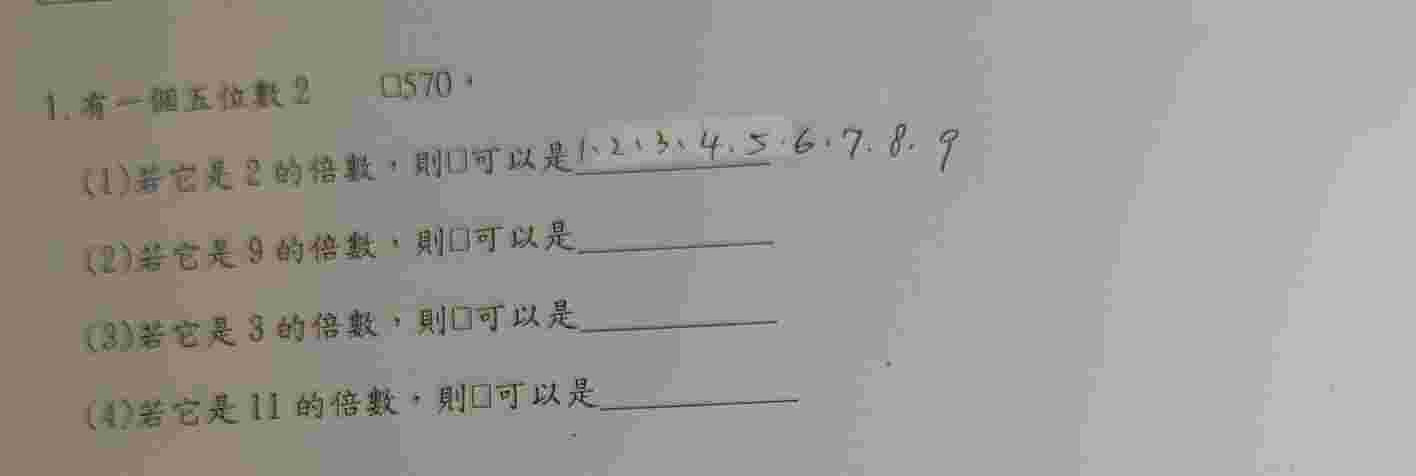 1.有一個五位數2 □570，
(1)若它是2的倍數，則□可以是1、2、3、4、5、6、7、8、9
(2)若它是9的倍數，則□可以是
(3)若它是3的倍數，則□可以是
(4)若它是11的倍數，則□可以是